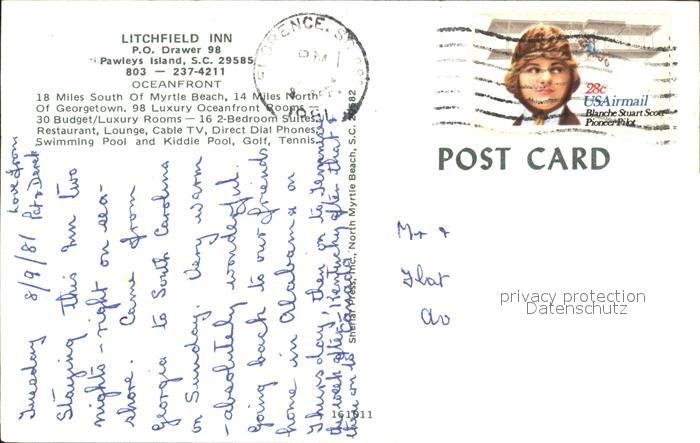 LITCHFIELD INN
P.O. Drawer 98
Pawleys Island, S.C. 29585
803 — 237-4211
OCEANFRONT
18 Miles South Of Myrtle Beach, 14 Miles North
Of Georgetown. 98 Luxury Oceanfront Rooms —
30 Budget/Luxury Rooms — 16 2-Bedroom Suites,
Restaurant, Lounge, Cable TV, Direct Dial Phones,
Swimming Pool and Kiddie Pool, Golf, Tennis.
FLORENCE, S.C.
PM
1981
28c
USAirmail
Blanche Stuart Scott
Pioneer Pilot
POST CARD
Tuesday 8/9/81
Staying this Inn two
nights - right on sea-
shore. Came from
Georgia to South Carolina
on Sunday. Very warm
- absolutely wonderful.
Going back to our friends
home in Alabama on
Thursday, then on to Tennessee
the week after, Kentucky after that &
then on to Canada
Love from
Pat & Derek
Sherial Press, Inc., North Myrtle Beach, S.C. 29582
161911
Mr &
Flat
privacy protection
Datenschutz